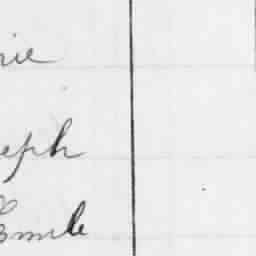 nie
eph
Emile